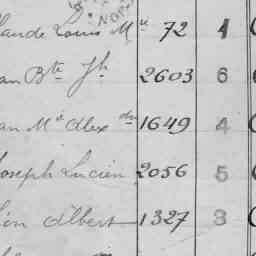 NORD
laude Louis M^ie 72 1
an B^te J^h 2603 6
an M^ie Alex^dre 1649 4
Joseph Lucien 2056 5
éon Albert 1327 3